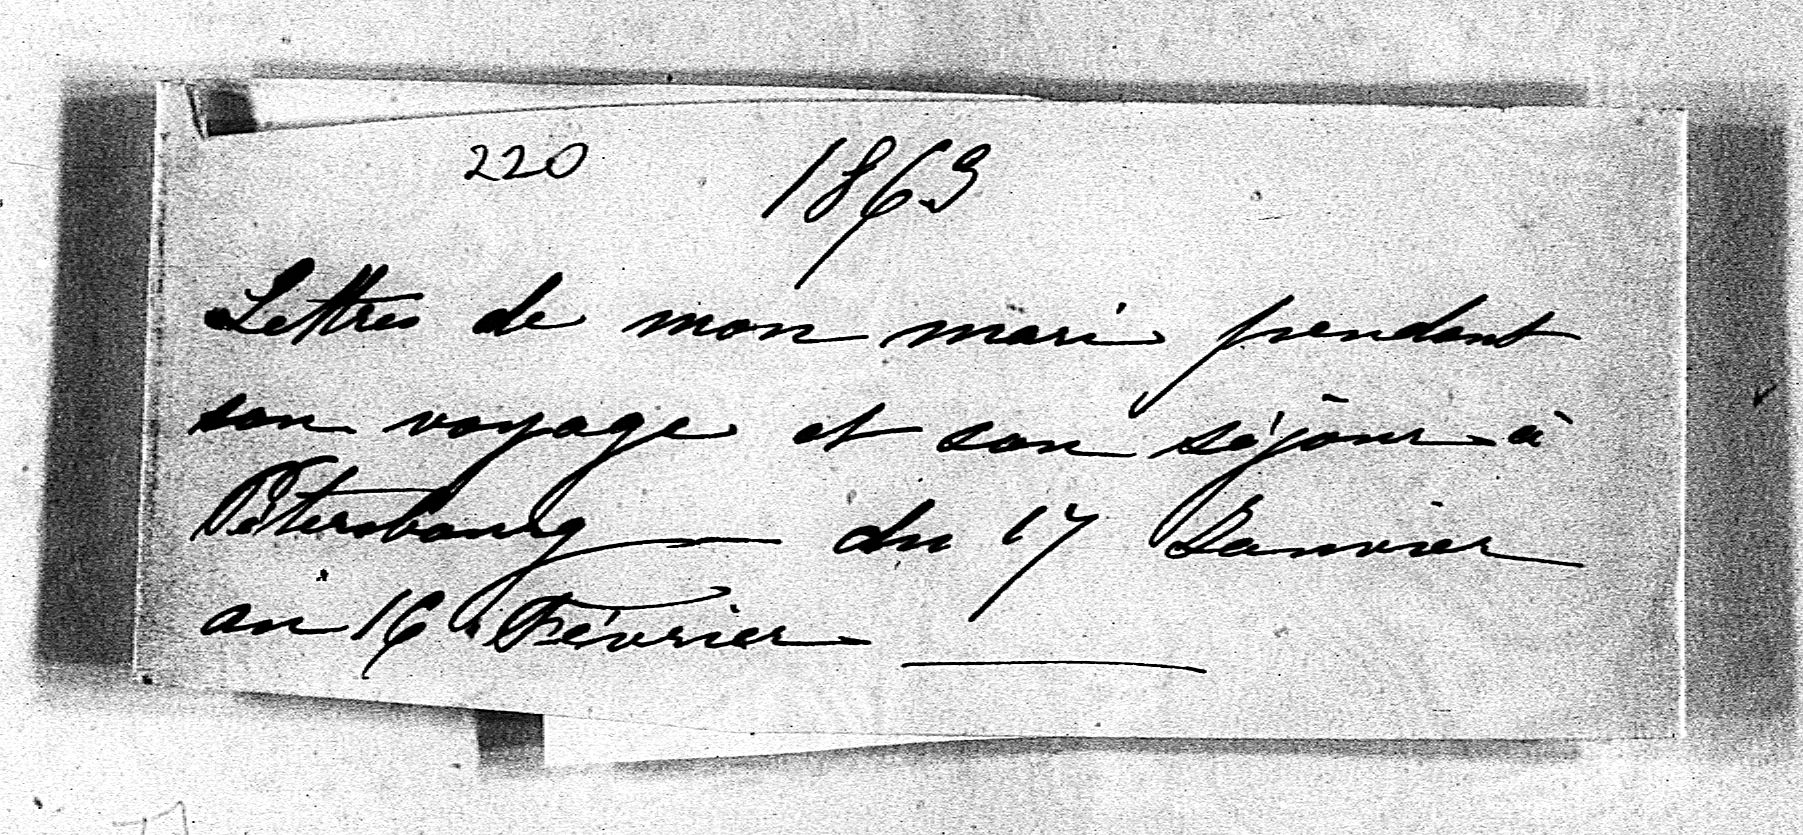 220 1863
Lettres de mon mari pendant
son voyage et son séjour à
Pétersbourg du 17 Janvier
au 16 Février